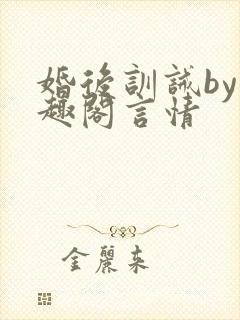 婚後訓誡by
趣閣言情
金麗来